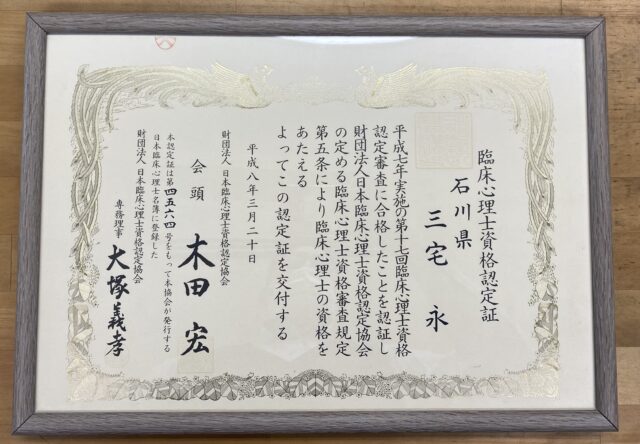 臨床心理士資格認定証
石川県
三宅 永
平成七年実施の第十七回臨床心理士資格
認定審査に合格したことを認証し
財団法人日本臨床心理士資格認定協会
の定める臨床心理士資格審査規定
第五条により臨床心理士の資格を
あたえる
よってこの認定証を交付する
平成八年三月二十日
財団法人 日本臨床心理士資格認定協会
会頭 木田宏
本認定証は第四五六四号をもって本協会が発行する
日本臨床心理士名簿に登録した
財団法人 日本臨床心理士資格認定協会
専務理事 大塚義孝